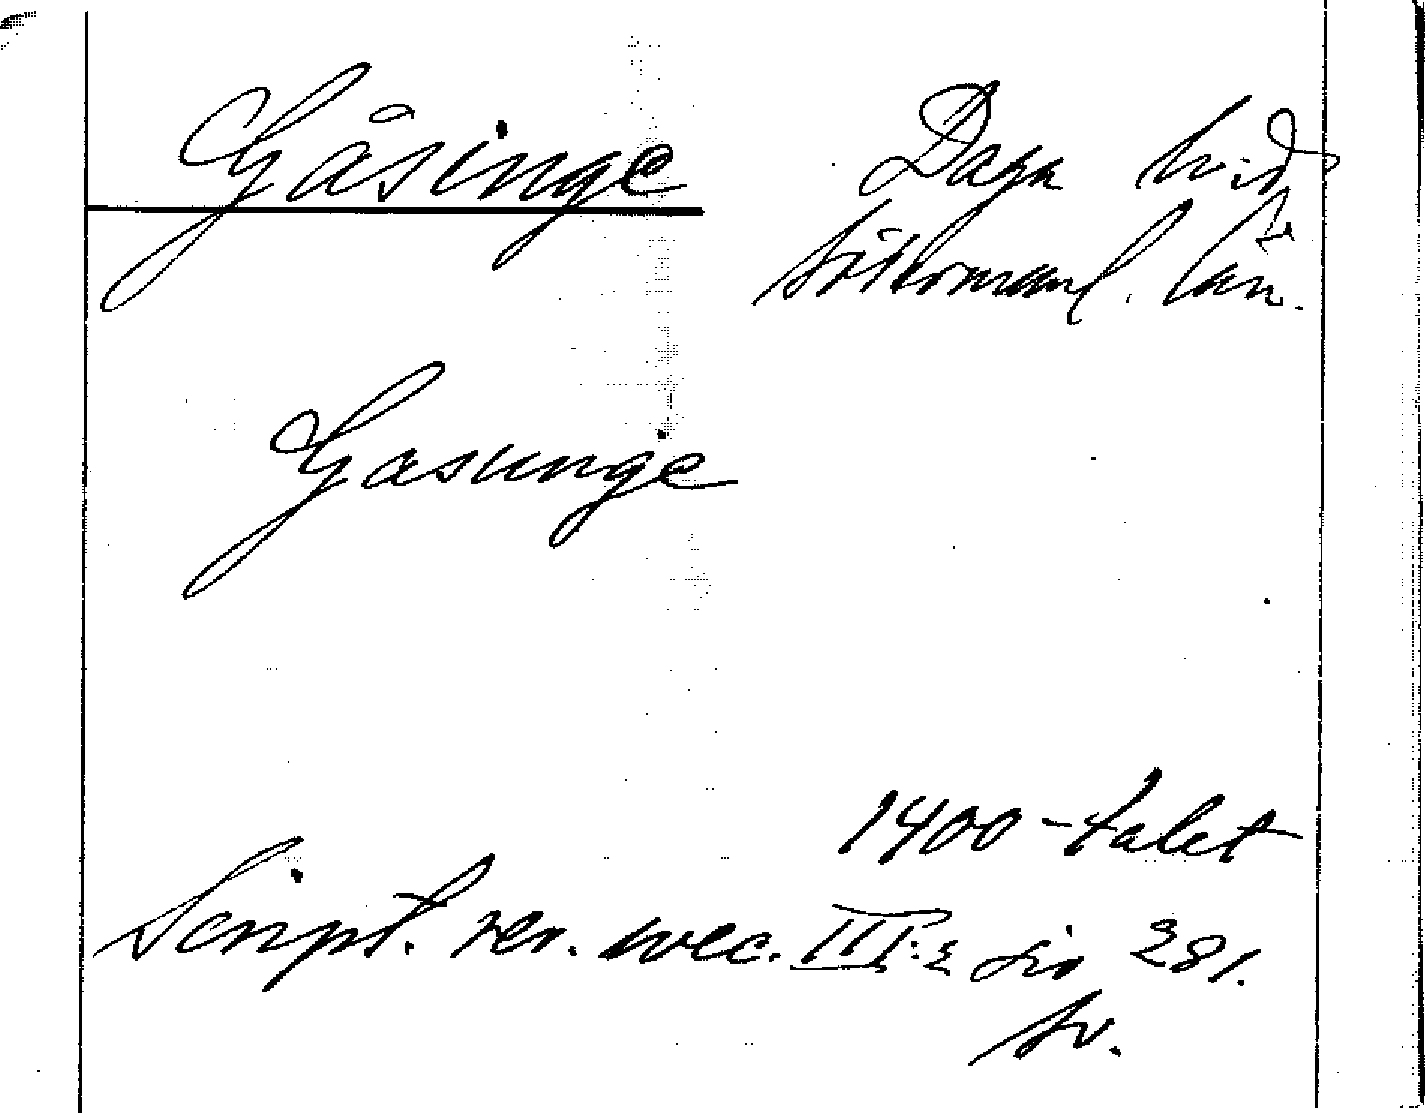 Gåsinge Daga hd
Södermanl. län.
Gasunge
1400-talet
Script. rer. svec. III:2 sid 281.
Sv.